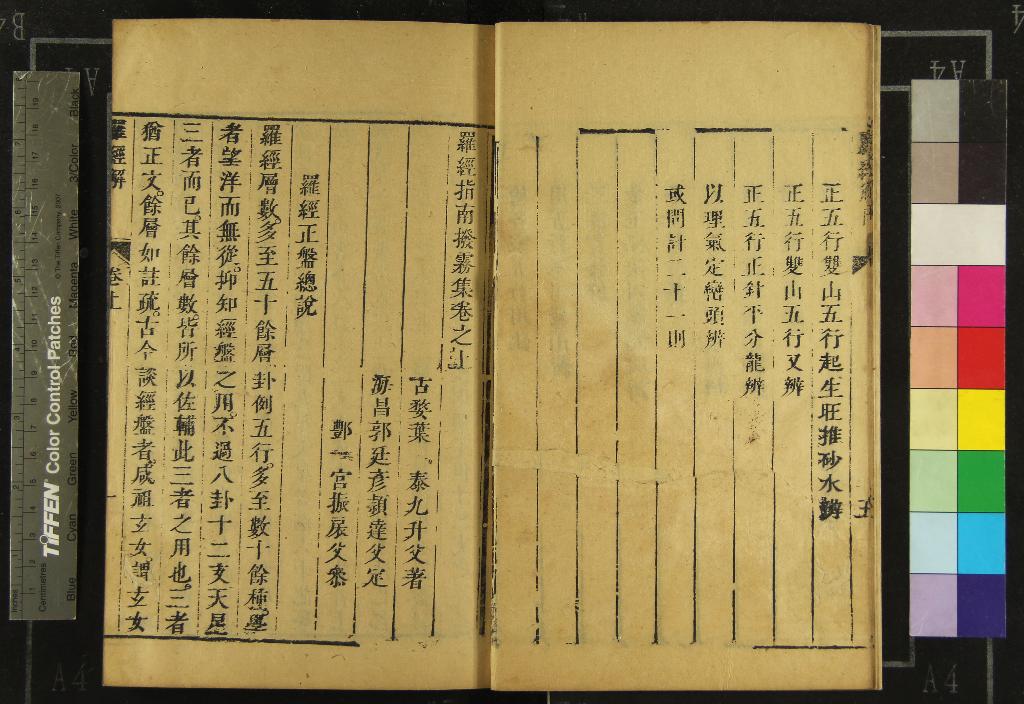 正五行雙山五行起生旺推砂水辨
正五行雙山五行又辨
正五行正針平分龍辨
以理氣定巒頭辨
或問計二十一則
五
羅經指南撥霧集卷之上
古婺葉 泰九升父著
海昌郭廷彥頴達父定
酆 宮振宸父叅
羅經正盤總說
羅經層數。多至五十餘層。卦例五行。多至數十餘種。學
者望洋而無從。抑知經盤之用。不過八卦十二支天星
三者而已。其餘層數。皆所以佐輔此三者之用也。三者
猶正文。餘層如註疏。古今談經盤者。咸祖玄女。謂玄女
羅經解
卷上
一
TIFFEN Color Control Patches
© The Tiffen Company, 2007
Inches
Centimetres
Blue
Cyan
Green
Yellow
Red
Magenta
White
3/Color
Black
A4
A4
A4
A4